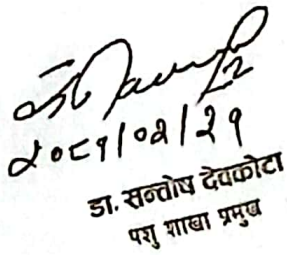 २०८१/०२/२१
डा. सन्तोष देवकोटा
पशु शाखा प्रमुख